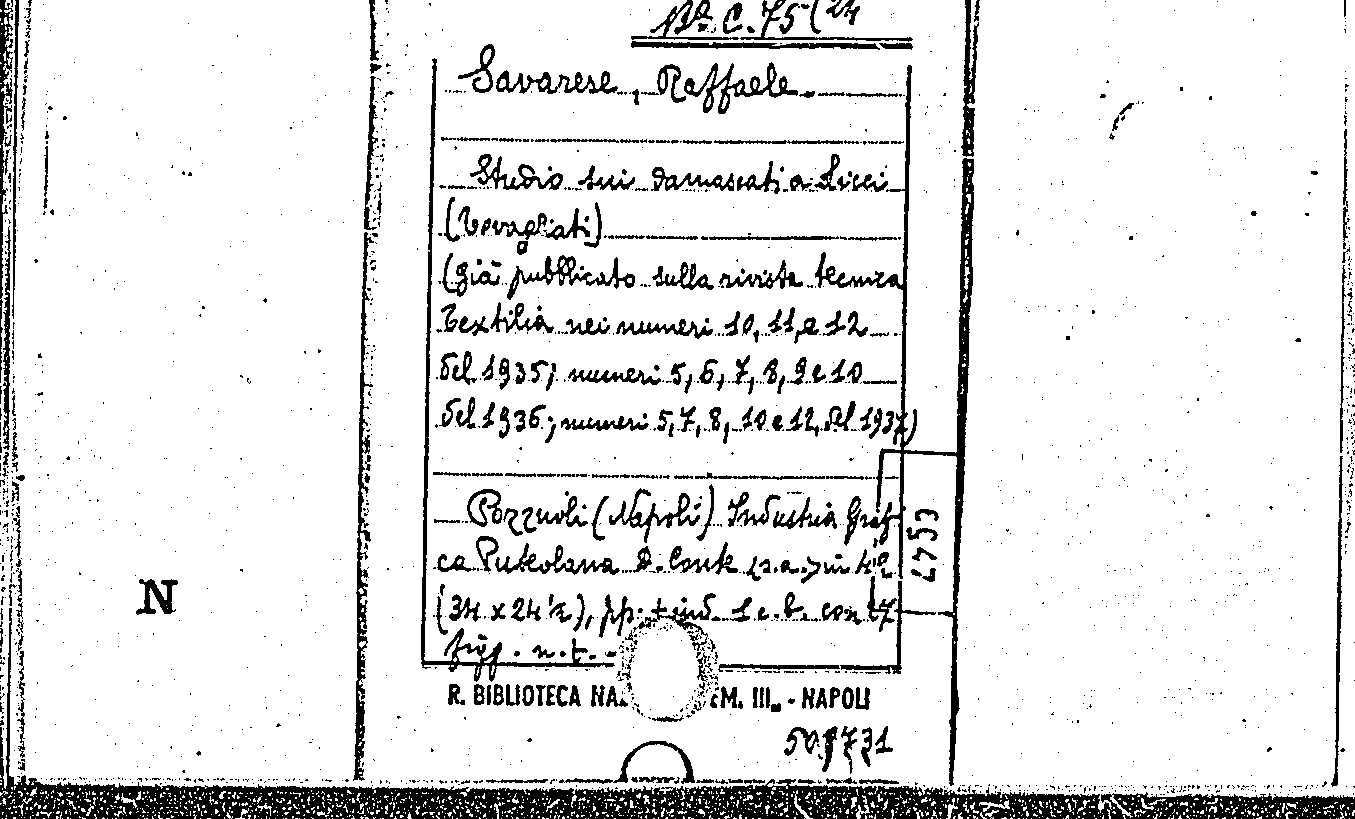 Bª C. 75 (24
Savarese, Raffaele.
Studio sui damascati a licci
(Tovagliati)
(già pubblicato sulla rivista tecnica
Textilia nei numeri 10, 11, e 12
del 1935; numeri 5, 6, 7, 8, 9 e 10
del 1936; numeri 5, 7, 8, 10 e 12, del 1937)
Pozzuoli (Napoli) Industria Grafi
ca Puteolana D. Conte (s.a.) in 4º
(34 x 24 ½), pp. + ind. 1 c. b. con 47
figg. n. t. -
4753
N
R. BIBLIOTECA NAZ EM. III. - NAPOLI